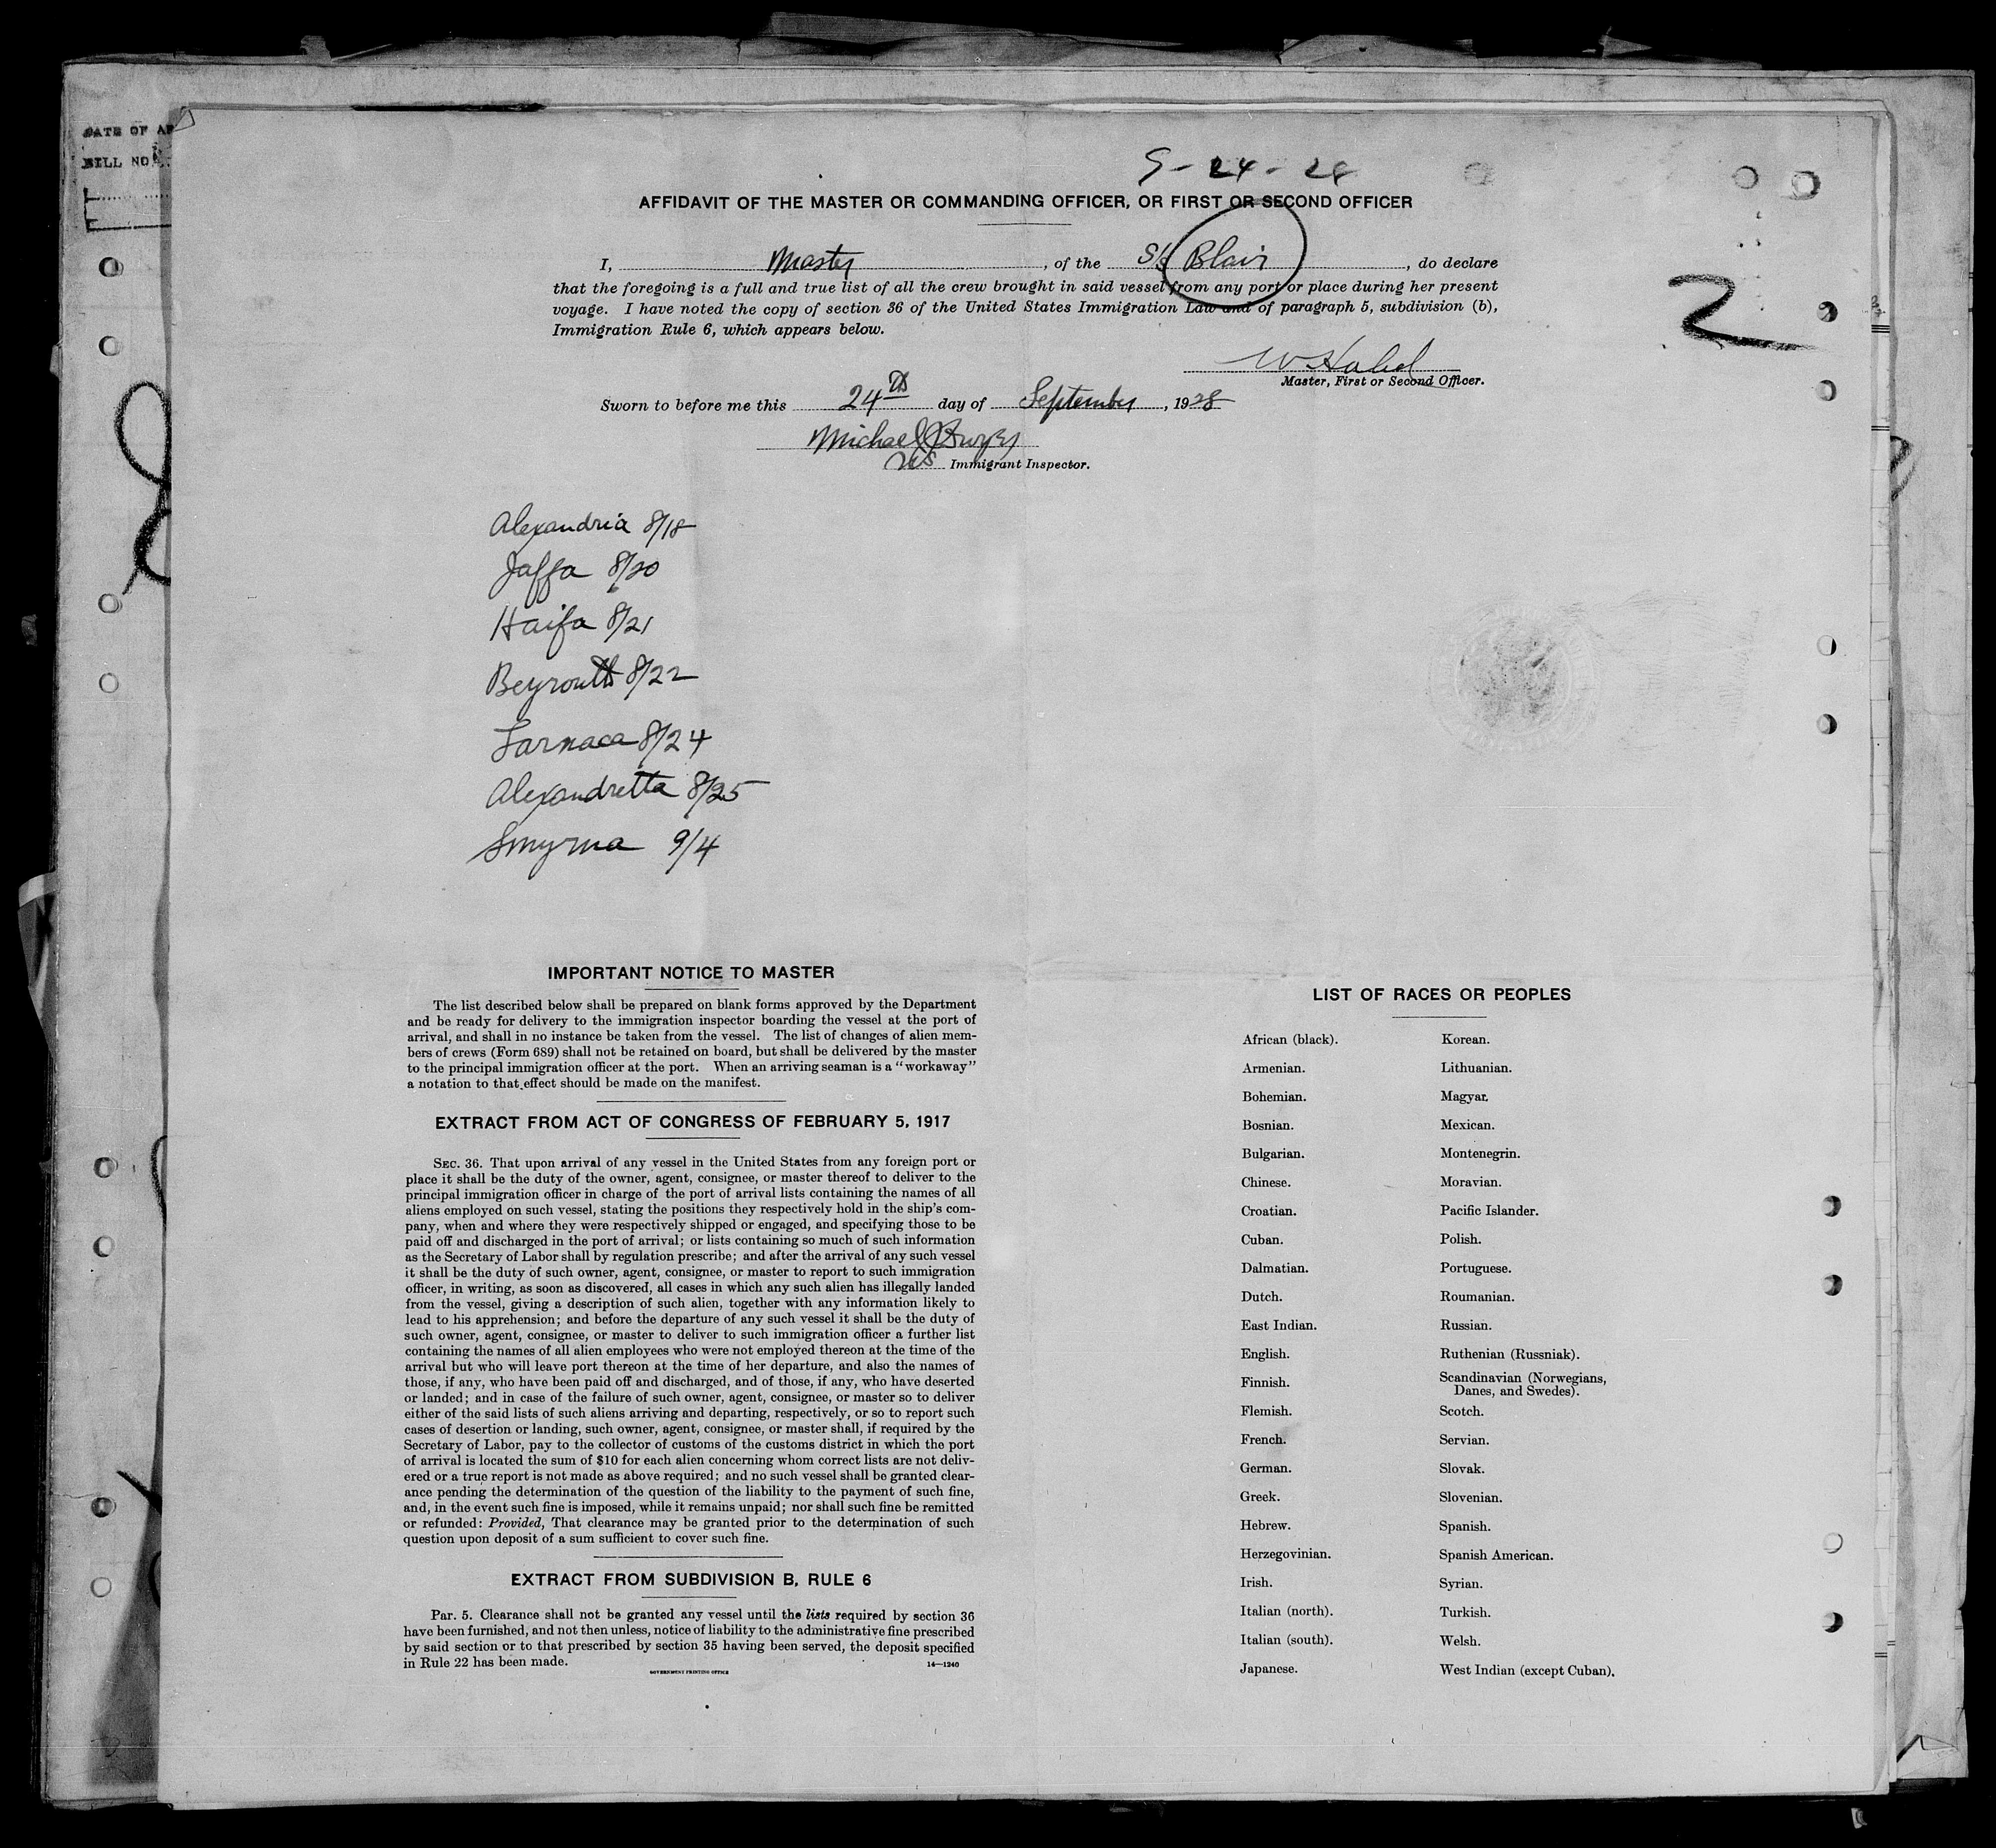 DATE OF AR
BILL NO.
9-24-28
AFFIDAVIT OF THE MASTER OR COMMANDING OFFICER, OR FIRST OR SECOND OFFICER
I, Master, of the S/S Blair, do declare
that the foregoing is a full and true list of all the crew brought in said vessel from any port or place during her present
voyage. I have noted the copy of section 36 of the United States Immigration Law and of paragraph 5, subdivision (b),
Immigration Rule 6, which appears below.
2
W
Master, First or Second Officer.
Sworn to before me this 24th day of September, 1928
Michael J Dwyer
US Immigrant Inspector.
Alexandria 8/18
Jaffa 8/20
Haifa 8/21
Beyrouth 8/22
Larnaca 8/24
Alexandretta 8/25
Smyrna 9/4
IMPORTANT NOTICE TO MASTER
The list described below shall be prepared on blank forms approved by the Department
and be ready for delivery to the immigration inspector boarding the vessel at the port of
arrival, and shall in no instance be taken from the vessel. The list of changes of alien mem-
bers of crews (Form 689) shall not be retained on board, but shall be delivered by the master
to the principal immigration officer at the port. When an arriving seaman is a "workaway"
a notation to that effect should be made on the manifest.
EXTRACT FROM ACT OF CONGRESS OF FEBRUARY 5, 1917
SEC. 36. That upon arrival of any vessel in the United States from any foreign port or
place it shall be the duty of the owner, agent, consignee, or master thereof to deliver to the
principal immigration officer in charge of the port of arrival lists containing the names of all
aliens employed on such vessel, stating the positions they respectively hold in the ship's com-
pany, when and where they were respectively shipped or engaged, and specifying those to be
paid off and discharged in the port of arrival; or lists containing so much of such information
as the Secretary of Labor shall by regulation prescribe; and after the arrival of any such vessel
it shall be the duty of such owner, agent, consignee, or master to report to such immigration
officer, in writing, as soon as discovered, all cases in which any such alien has illegally landed
from the vessel, giving a description of such alien, together with any information likely to
lead to his apprehension; and before the departure of any such vessel it shall be the duty of
such owner, agent, consignee, or master to deliver to such immigration officer a further list
containing the names of all alien employees who were not employed thereon at the time of the
arrival but who will leave port thereon at the time of her departure, and also the names of
those, if any, who have been paid off and discharged, and of those, if any, who have deserted
or landed; and in case of the failure of such owner, agent, consignee, or master so to deliver
either of the said lists of such aliens arriving and departing, respectively, or so to report such
cases of desertion or landing, such owner, agent, consignee, or master shall, if required by the
Secretary of Labor, pay to the collector of customs of the customs district in which the port
of arrival is located the sum of $10 for each alien concerning whom correct lists are not deliv-
ered or a true report is not made as above required; and no such vessel shall be granted clear-
ance pending the determination of the question of the liability to the payment of such fine,
and, in the event such fine is imposed, while it remains unpaid; nor shall such fine be remitted
or refunded: Provided, That clearance may be granted prior to the determination of such
question upon deposit of a sum sufficient to cover such fine.
EXTRACT FROM SUBDIVISION B, RULE 6
Par. 5. Clearance shall not be granted any vessel until the lists required by section 36
have been furnished, and not then unless, notice of liability to the administrative fine prescribed
by said section or to that prescribed by section 35 having been served, the deposit specified
in Rule 22 has been made.
GOVERNMENT PRINTING OFFICE 14—1240
LIST OF RACES OR PEOPLES
African (black). Korean.
Armenian. Lithuanian.
Bohemian. Magyar.
Bosnian. Mexican.
Bulgarian. Montenegrin.
Chinese. Moravian.
Croatian. Pacific Islander.
Cuban. Polish.
Dalmatian. Portuguese.
Dutch. Roumanian.
East Indian. Russian.
English. Ruthenian (Russniak).
Finnish. Scandinavian (Norwegians,
Danes, and Swedes).
Flemish. Scotch.
French. Servian.
German. Slovak.
Greek. Slovenian.
Hebrew. Spanish.
Herzegovinian. Spanish American.
Irish. Syrian.
Italian (north). Turkish.
Italian (south). Welsh.
Japanese. West Indian (except Cuban).